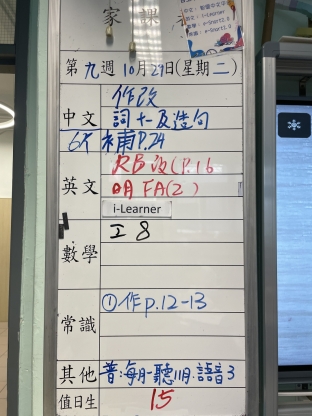 家課
第九週10月29日(星期二)
作改
中文 詞十一及造句
6本 補P.24
RB改(P.16
英文 明FA(2)
i-Learner
工8
數學
常識 ①作p.12-13
其他 普:每月一聽11月.語音3
值日生 15